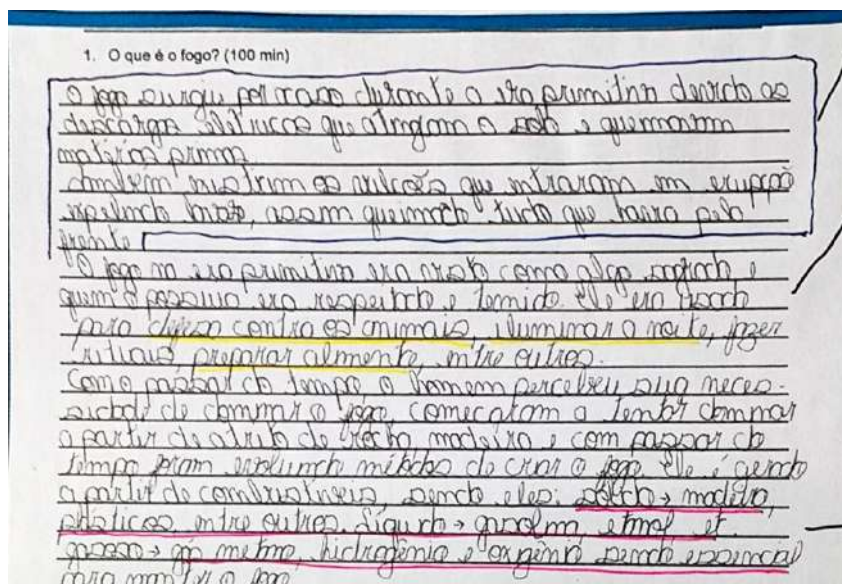 1. O que é o fogo? (100 min)
O fogo surgiu por acaso durante a era primitiva devido as
descargas eletricas que atingiam o solo e queimavam
matérias primas
também existiam os vulcões que entraram em erupção
expelindo lavas, assim queimando tudo que havia pela
frente
O fogo na era primitiva era visto como algo sagrado e
quem o possuia era respeitado e temido. Ele era usado
para defesa contra os animais, iluminar a noite, fazer
rituais, preparar alimento, entre outros.
Como passar do tempo o homem percebeu sua neces-
sidade de dominar o fogo, começaram a tentar dominar
a partir de atrito de rocha, madeira e com passar do
tempo foram evoluindo métodos de criar o fogo. Ele é gerado
a partir de combustiveis sendo eles: sólido → madeira,
plasticos, entre outros. Líquido → gasolina, etanol et
gasoso → gás metano, hidrogênio e oxgênio sendo essencial
para manter o fogo